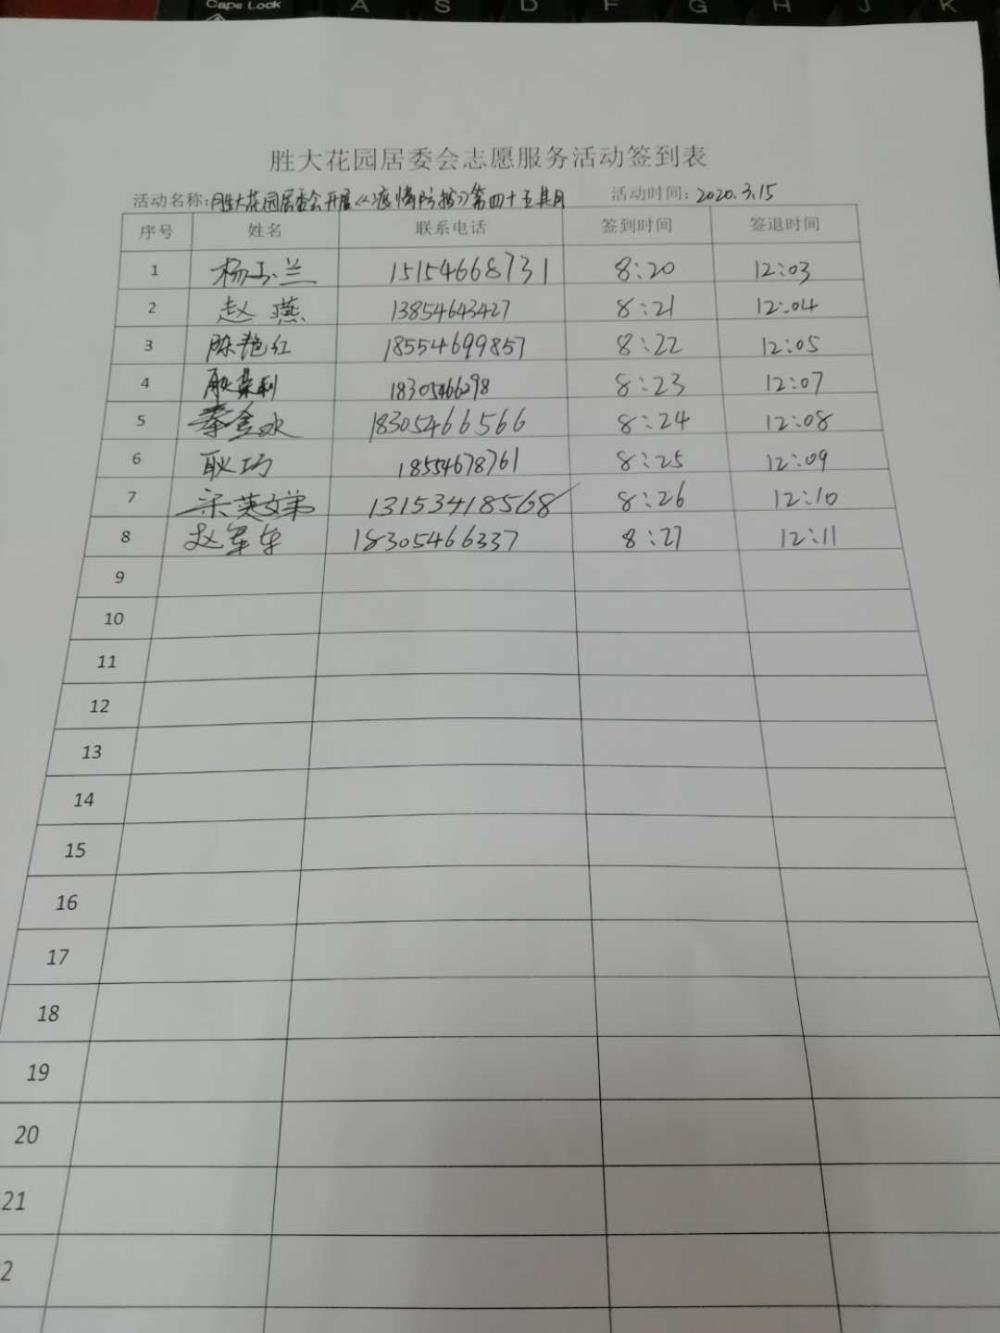 Caps Lock A S D F G H J K
胜大花园居委会志愿服务活动签到表
活动名称:胜大花园居委会开展《疫情防控》第四十五 活动时间: 2020.3.15
序号 姓名 联系电话 签到时间 签退时间
1 杨玉兰 15154668731 8:20 12:03
2 赵燕 13854643427 8:21 12:04
3 陈艳红 18554699857 8:22 12:05
4 18305466298 8:23 12:07
5 18305466566 8:24 12:08
6 耿巧 18554678761 8:25 12:09
7 13153418568 8:26 12:10
8 赵军 18305466337 8:27 12:11
9
10
11
12
13
14
15
16
17
18
19
20
21
2